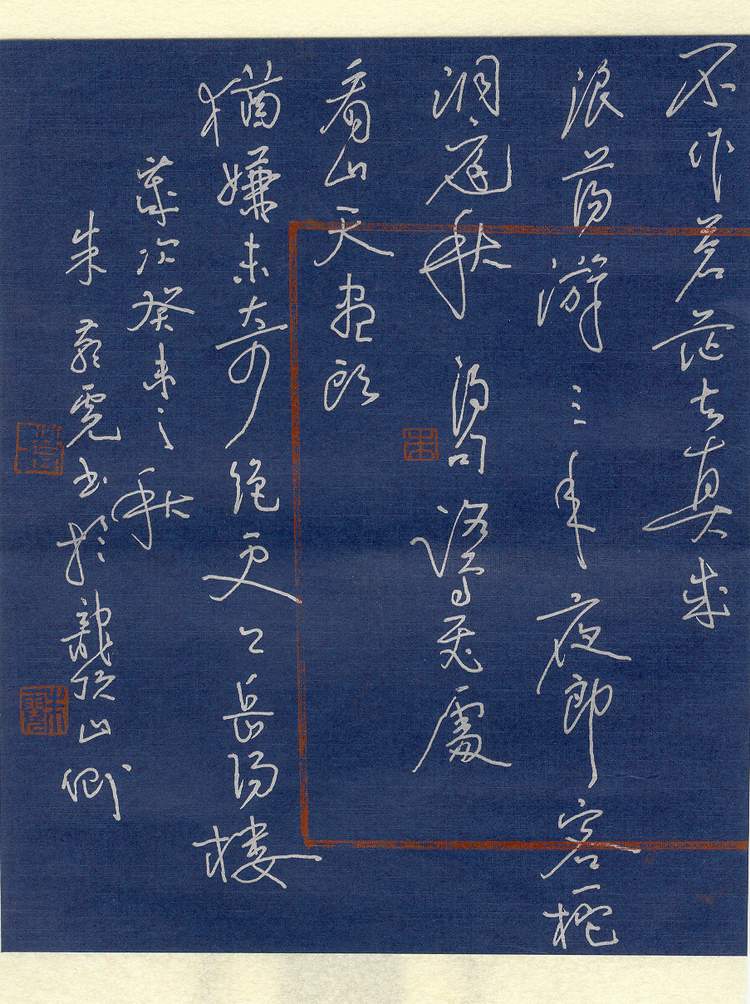 不作蒼茫去真成
浪蕩游三年夜郎客一柁
洞庭秋得句鷺飛處
看山天盡頭
猶嫌未奇絕更上岳陽樓
歲次癸未之秋
朱 書於龍頂山側